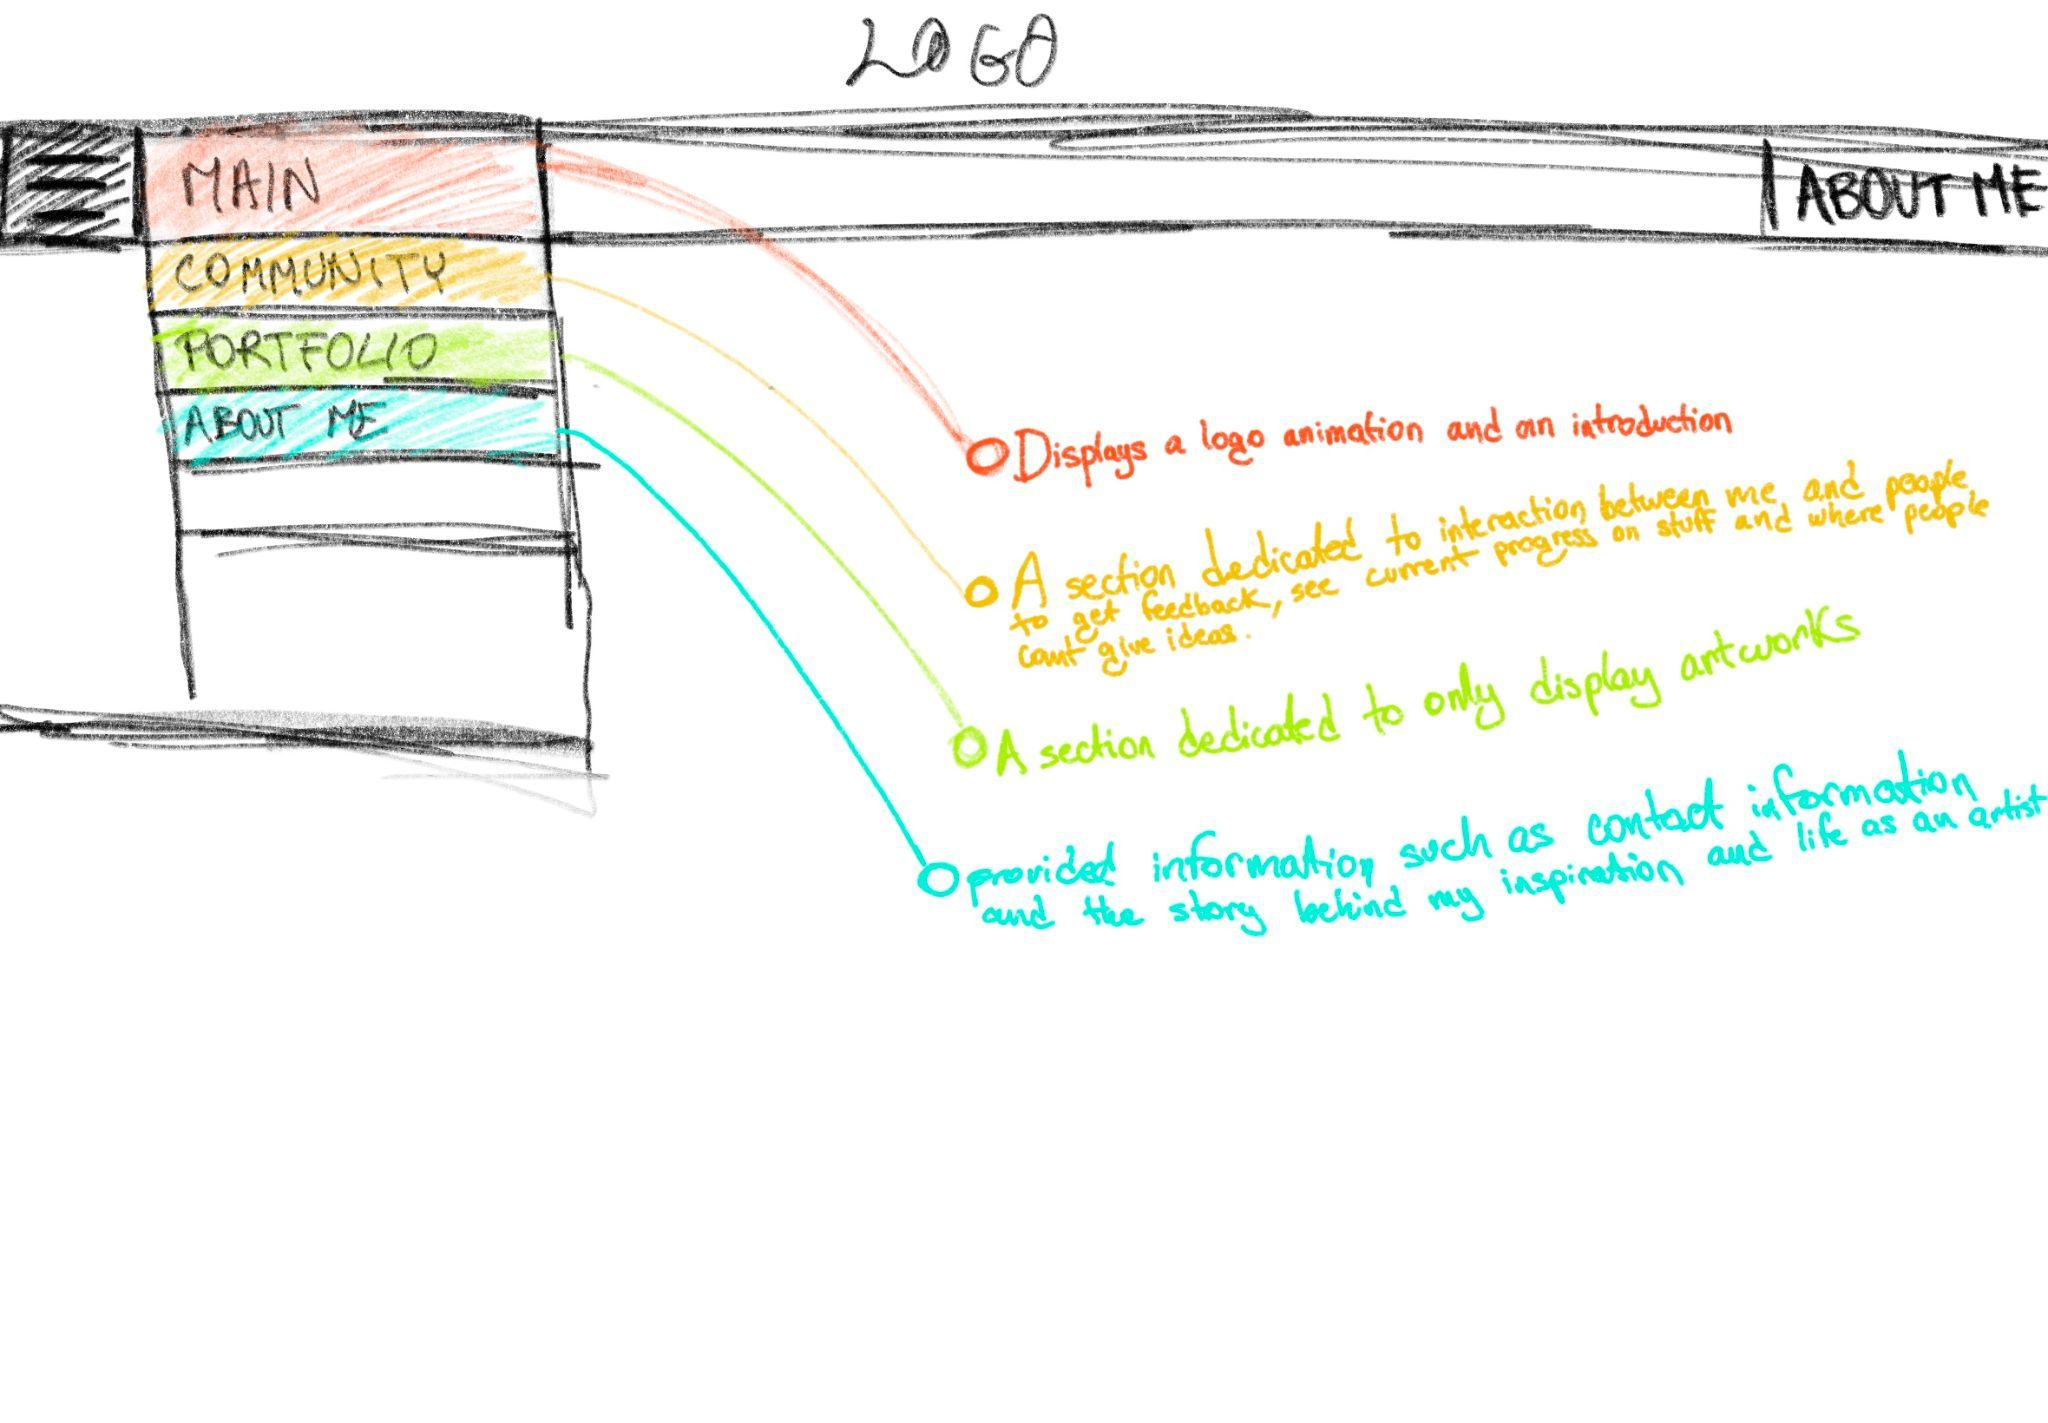 LOGO
MAIN
ABOUT ME
COMMUNITY
PORTFOLIO
ABOUT ME
Displays a logo animation and an introduction
A section dedicated to interaction between me, and people
to get feedback, see current progress on stuff and where people
cant give ideas.
A section dedicated to only display artworks
provided information, such as contact information
and the story behind my inspiration and life as an artist